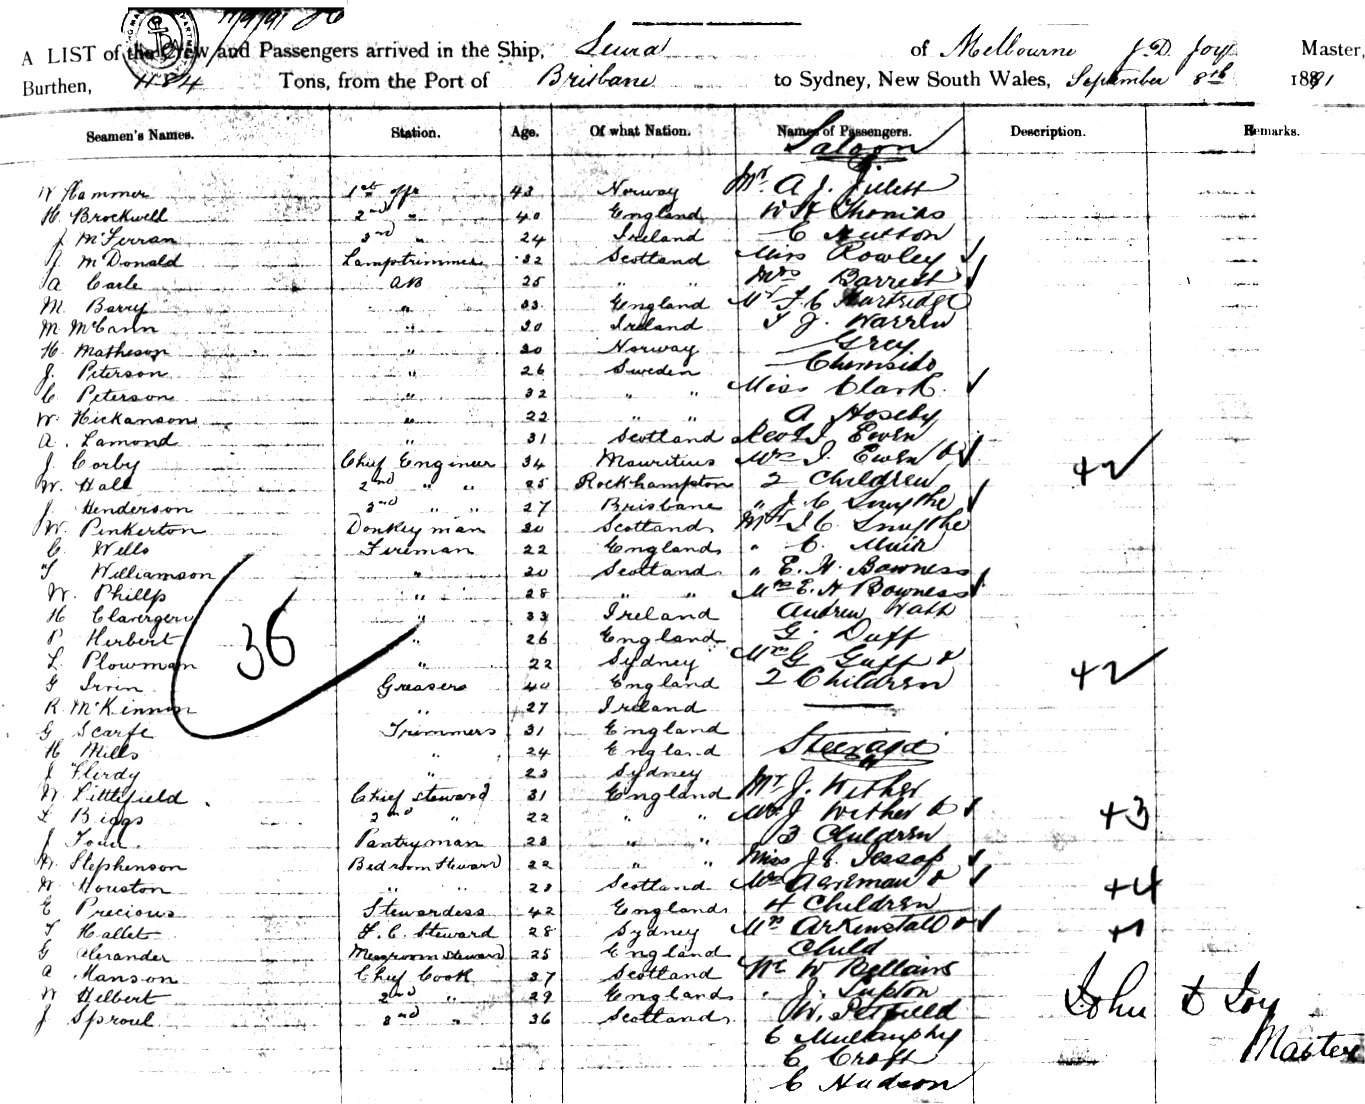 11/9/91
A LIST of the Crew and Passengers arrived in the Ship, Leura of Melbourne J.D. Joy Master,
Burthen, 484 Tons, from the Port of Brisbane to Sydney, New South Wales, September 8th 1891
Seamen's Names. Station. Age. Of what Nation. Names of Passengers. Description. Remarks.
Saloon
W Hammer 1st offr 43 Norway Mr. A J.
H. Brockwell 2nd " 40 England W H Thomas
J McFerran 3rd " 24 Ireland C Hutton
J McDonald Lamptrimmer 32 Scotland Miss Rowley ✓
A Carle AB 25 " " Mrs Barrett ✓
M. Barry " 33 England Mr F. C. Hartridge
M McCann " 30 Ireland T J. Warren
H. Matheson " 30 Norway Grey
J. Peterson " 26 Sweden Chermside
C Peterson " 32 " " Miss Clark ✓
W. Hickanson " 22 " " A Hoseby
A. Lamond " 31 Scotland I Ewen
J. Corby Chief Engineer 34 Mauritius Mrs I. Ewen & ✓ +2 ✓
W. Hall 2nd " " 25 Rockhampton 2 Children
J. Henderson 3rd " " 27 Brisbane " J. C Smythe ✓
W. Pinkerton Donkey man 30 Scotland I C. Smythe
C Wells Fireman 22 England " C. Muir
T Williamson " 20 Scotland " E. H. Bowness
W. Phillp " 28 " " Mrs E. H Bowness ✓
H " 33 Ireland Andrew
P Herbert " 26 England G. Duff
L. Plowman " 22 Sydney Mrs G Guff &
36
G Irvin Greasers 40 England 2 Children +2 ✓
R. McKinnon " 27 Ireland
G Scarfe Trimmers 31 England
H Mills " 24 England Steerage
J " 23 Sydney
W Littlefield Chief Steward 31 England Mr J. Wither
L Biggs 2nd " 22 " " Mrs J Wither & ✓ +3
J Pantryman 23 " " 3 Children
W Stephenson Bedroom Steward 22 " " Miss J E. Jessop ✓
W Houston " " 23 Scotland Mrs & ✓ +4
E Precious Stewardess 42 England 4 Children
T Hallet F. C. Steward 28 Sydney Mrs Arkinstall & ✓ +1
G Alexander Messroom Steward 25 England Child
A Manson Chief Cook 37 Scotland W
W Helbert 2nd " 29 England J. Lupton John D Joy
J Sproul 3rd " 36 Scotland W.
C Mullauphy Master
C Croft
C Hudson